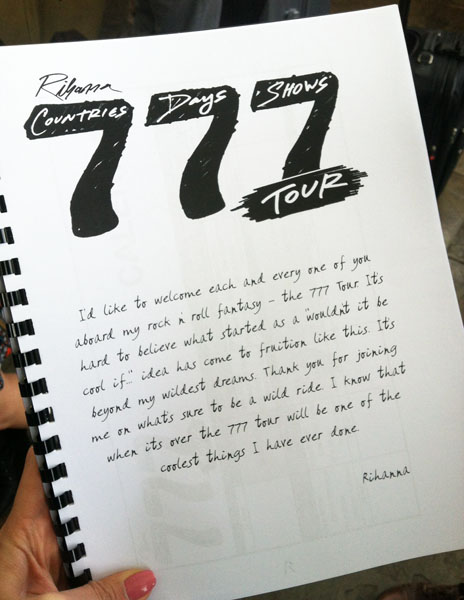 Rihanna
COUNTRIES Days SHOWS
777
TOUR
I'd like to welcome each and every one of you
aboard my rock n roll fantasy - the 777 Tour. It's
hard to believe what started as a "wouldn't it be
cool if..." idea has come to fruition like this. It's
beyond my wildest dreams. Thank you for joining
me on what's sure to be a wild ride. I know that
when its over the 777 tour will be one of the
coolest things I have ever done.
Rihanna
R